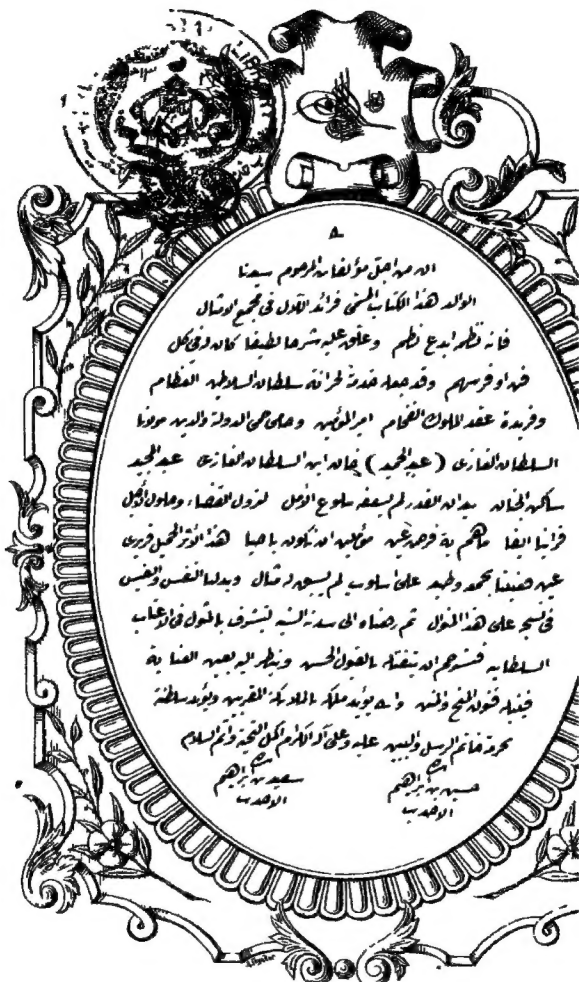 ان من اجل مؤلفات المرحوم سيدنا
الوالد هذا الكتاب المسمى فرائد اللآل في مجمع الامثال
فانه نظمه ابدع نظم وعلق عليه شرحا لطيفا كان له في كل
فن اوفر سهم وقد جعله خدمة لخزانة سلطان السلاطين العظام
وفريدة عقد الملوك الفخام امير المؤمنين وحامي حمى الدولة والدين مولانا
السلطان الغازى (عبد الحميد) خان ابن السلطان الغازى عبد المجيد
ساكن الجنان بيد ان القدر لم يسعفه ببلوغ الأمل لنزول القضاء وحلول الأجل
فرأينا ايفا ما هم به فرض عين مؤملين ان نكون باحيا هذا الأثر الجميل قريرى
عين فقمنا بجمعه وطبعه على اسلوب لم يسبق له مثال وبذلنا النفس والنفيس
في نسجه على هذا المنوال ثم رفعناه الى سدته السنية ليتشرف بالمثول في الاعتاب
السلطانية فنسترحم ان يتقبله بالقبول الحسن وينظر اليه بعين العناية
فينيله فنون المنح والمنن والله يؤيد ملكه بالملائكة المقربين ويؤيد سلطنته
بحرمة خاتم الرسل والنبيين عليه وعلى آله الكرام اكمل التحية واتم السلام
حسين بن ابراهيم سعيد بن ابراهيم
الاحدب الاحدب